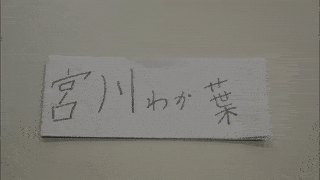 宮川わか葉